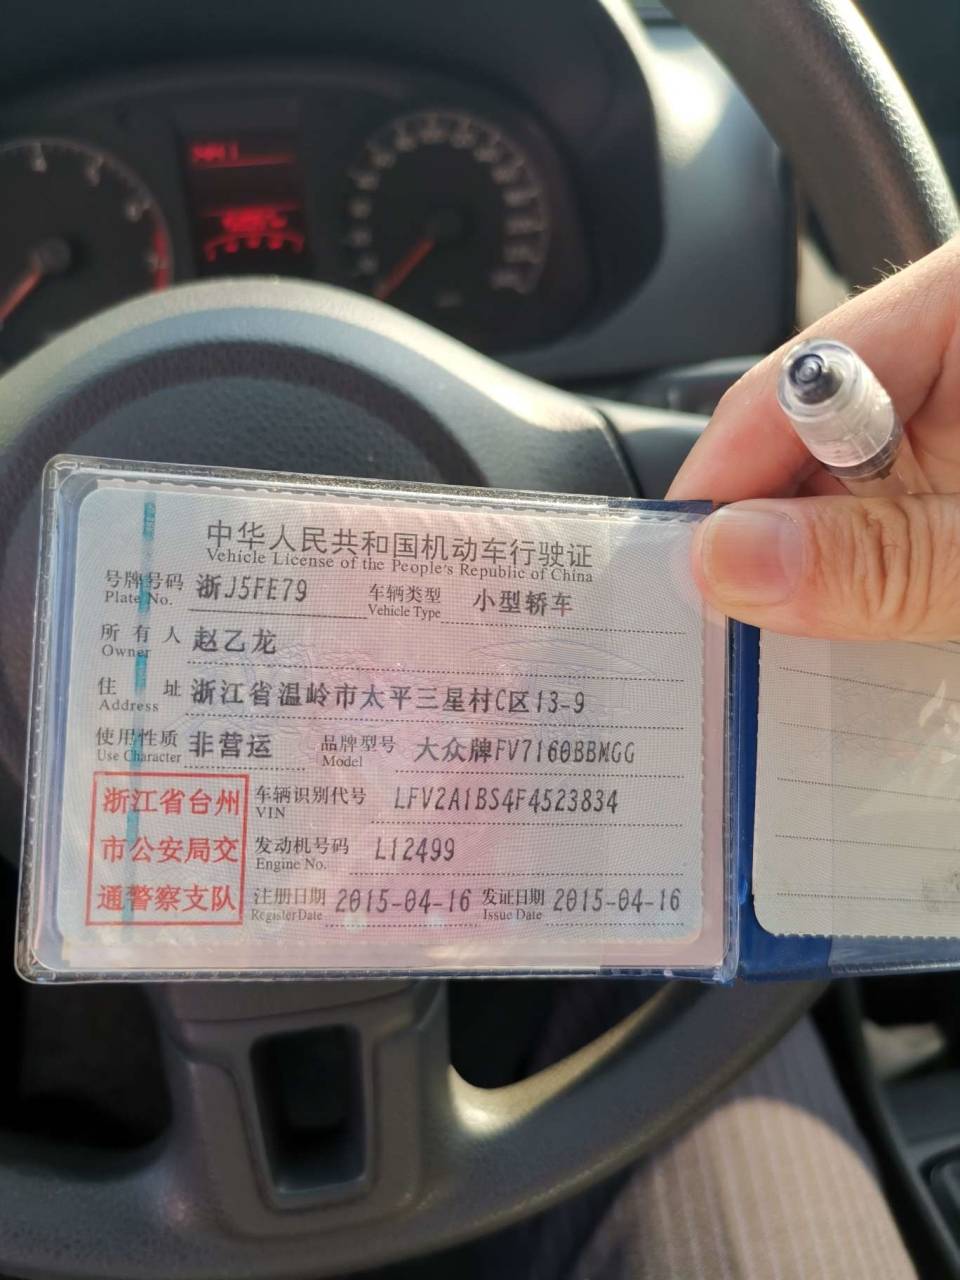 中华人民共和国机动车行驶证
Vehicle License of the People's Republic of China
号牌号码 浙J5FE79 车辆类型 小型轿车
Plate No. Vehicle Type
所有人 赵乙龙
Owner
住址 浙江省温岭市太平三星村C区13-9
Address
使用性质 非营运 品牌型号 大众牌FV7160BBMGG
Use Character Model
浙江省台州
市公安局交
通警察支队
车辆识别代号 LFV2A1BS4F4523834
VIN
发动机号码 L12499
Engine No.
注册日期 2015-04-16 发证日期 2015-04-16
Register Date Issue Date